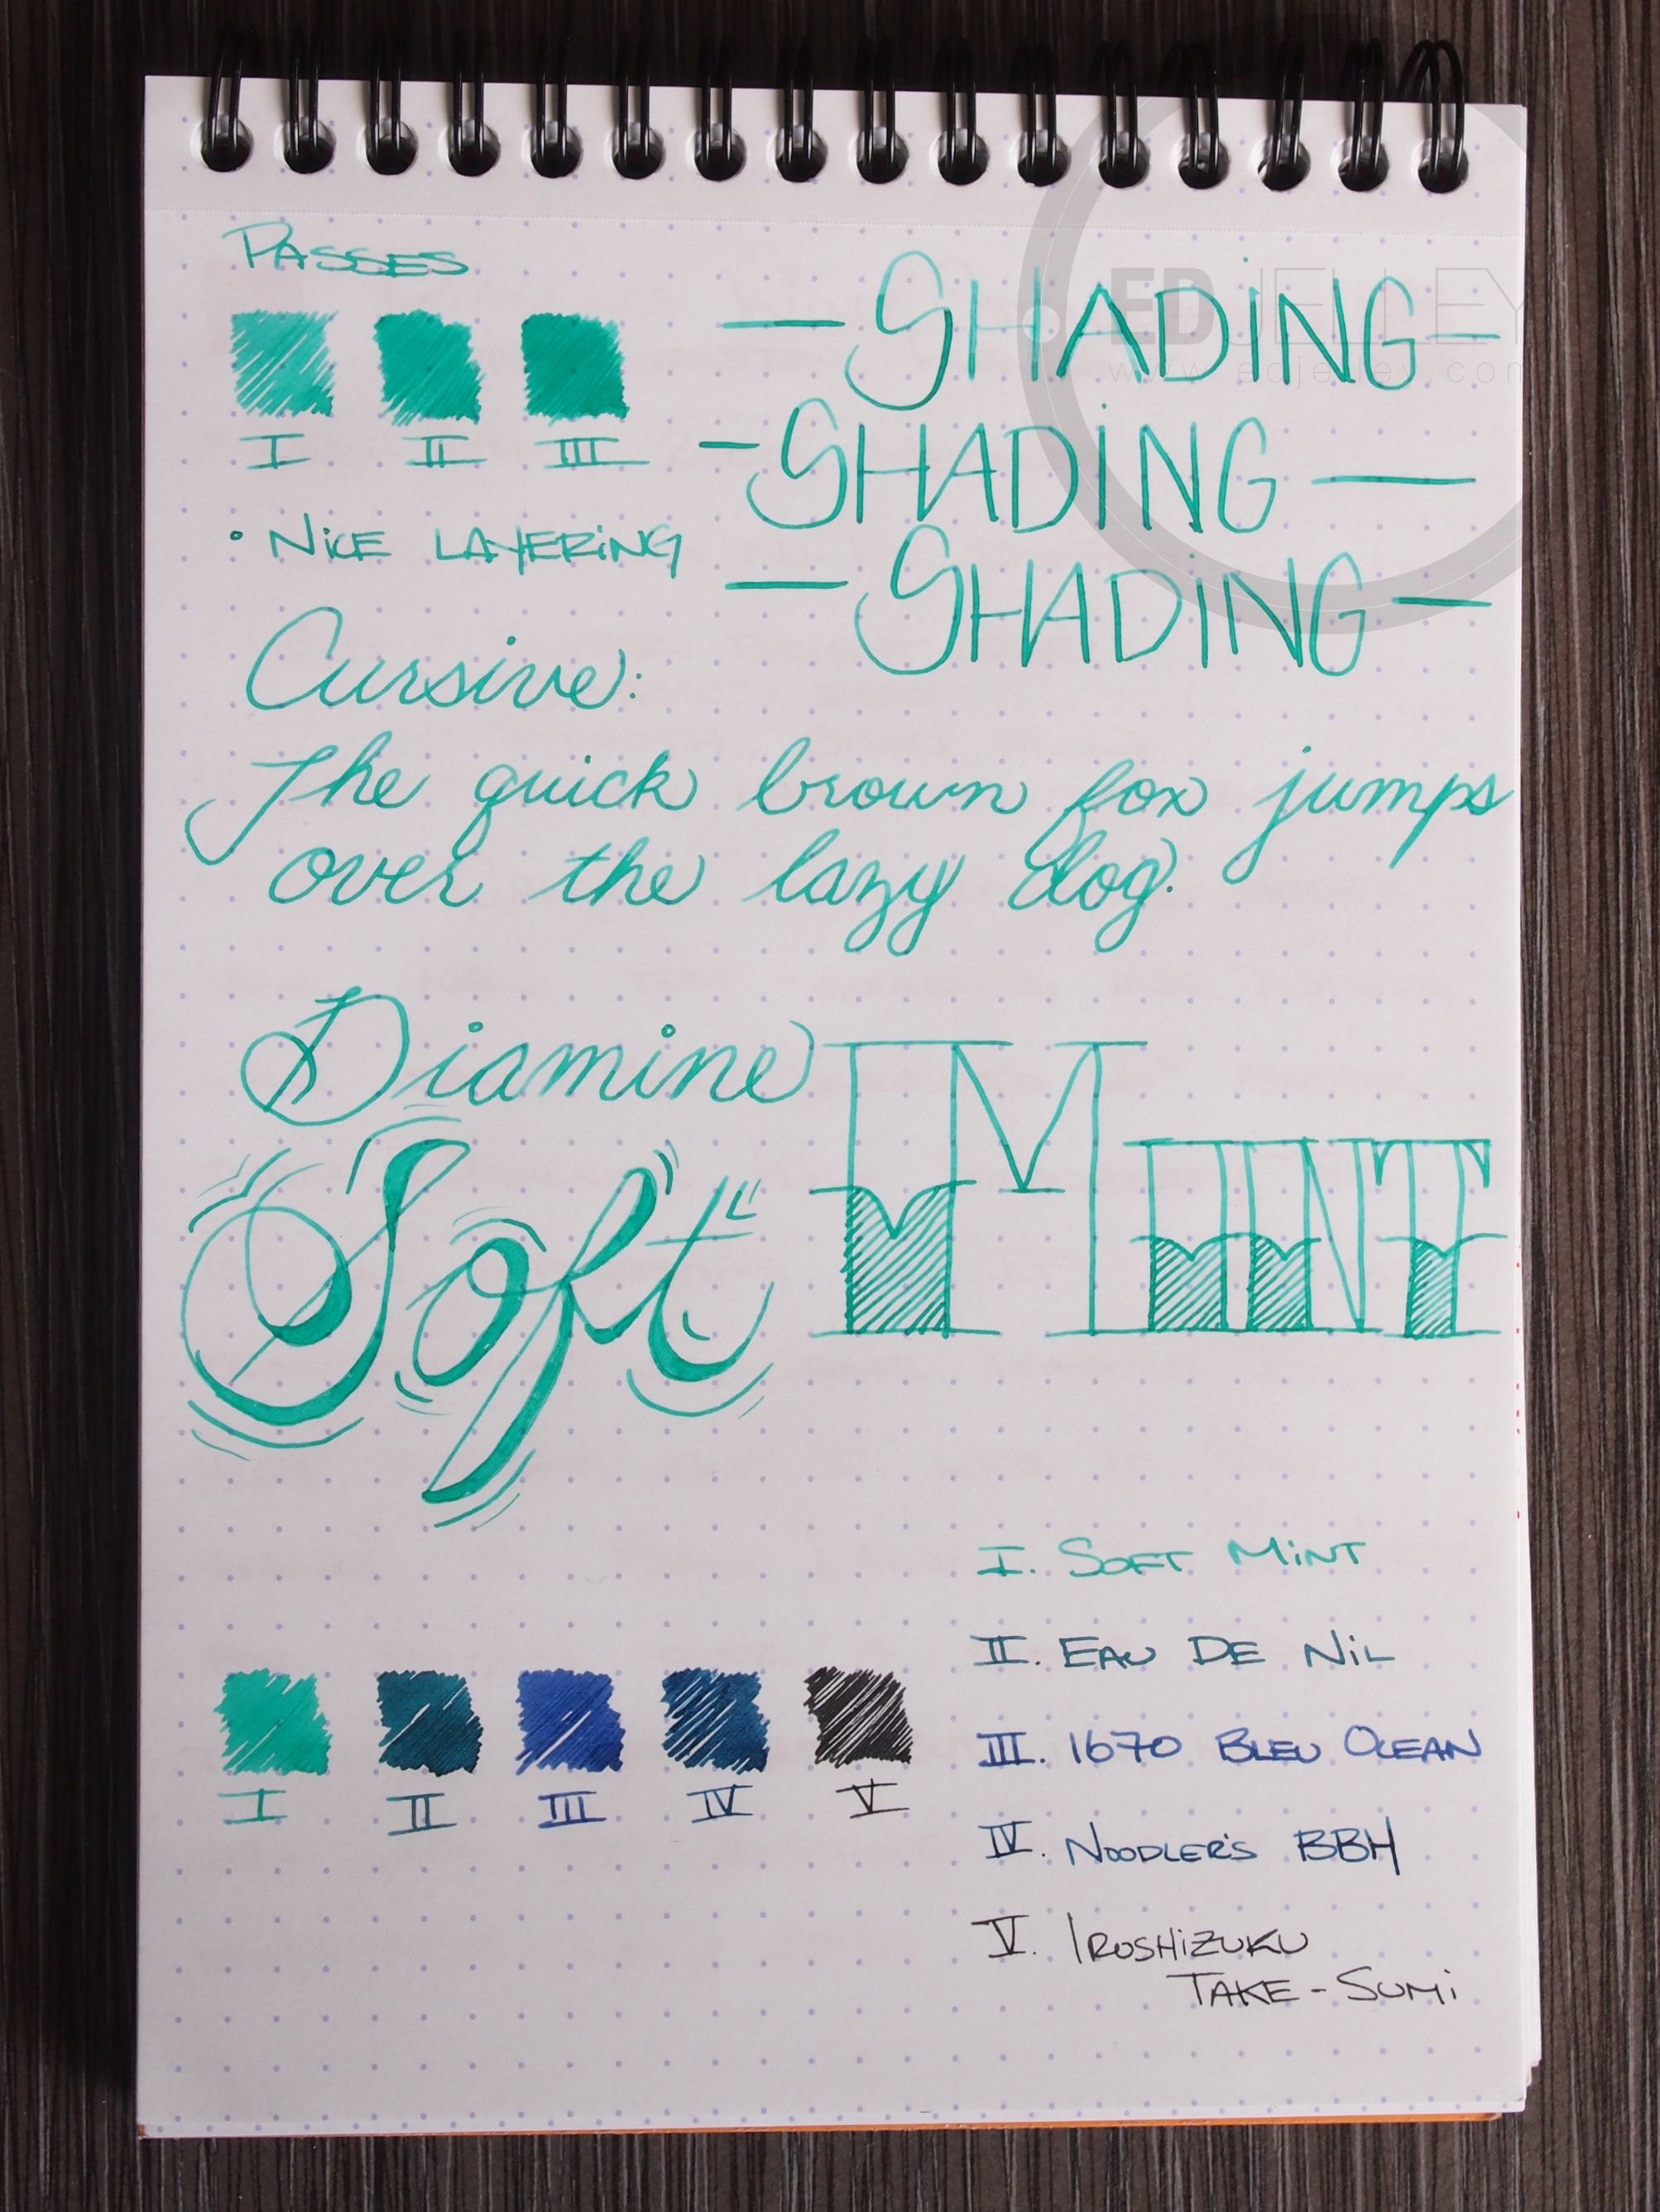 PASSES
I II III
• NiCE LAYERiNG
— SHADiNG —
— SHADiNG —
— SHADiNG —
ED JELLEY
www.edjelley.com
Cursive:
The quick brown fox jumps
over the lazy dog.
Diamine
Soft
MINT
I II III IV V
I. SOFT MiNT
II. EAU DE NiL
III. 1670 BLEU OCEAN
IV. NOODLER'S BBH
V. IROSHiZUKU
TAKE-SUMi